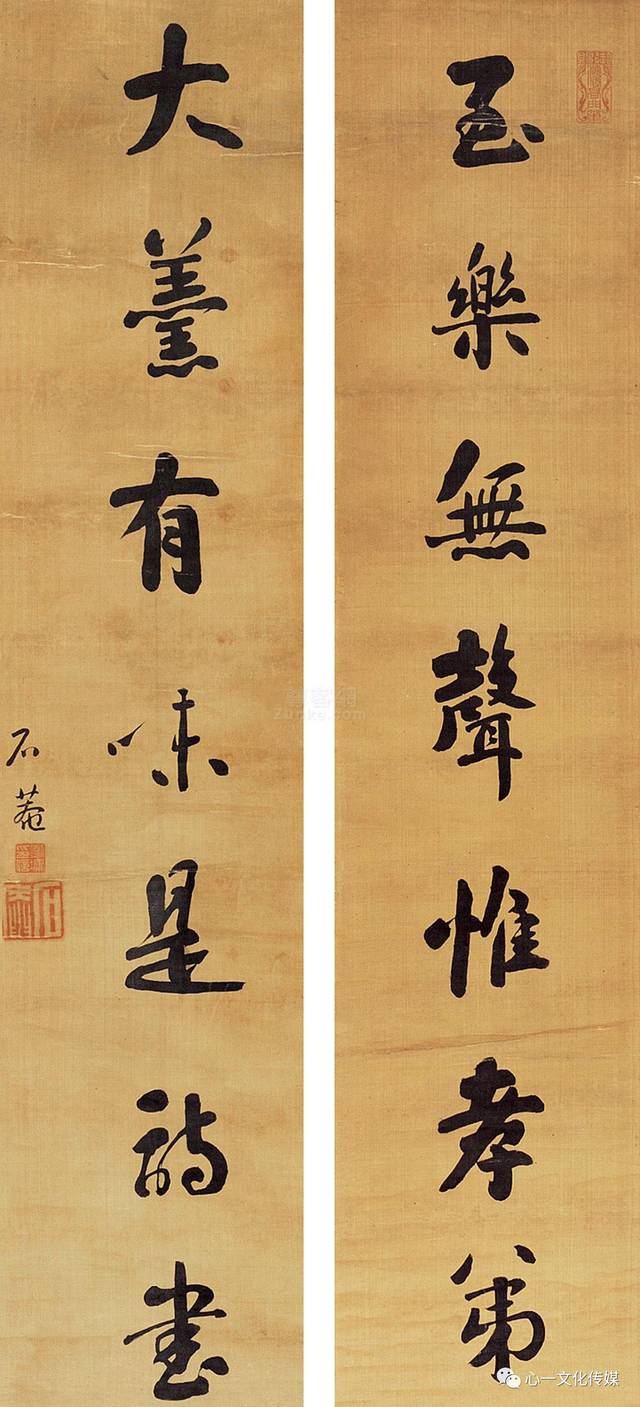 至樂無聲惟孝弟
大羹有味是詩書
石菴
青客網
Zunke.com
心一文化传媒